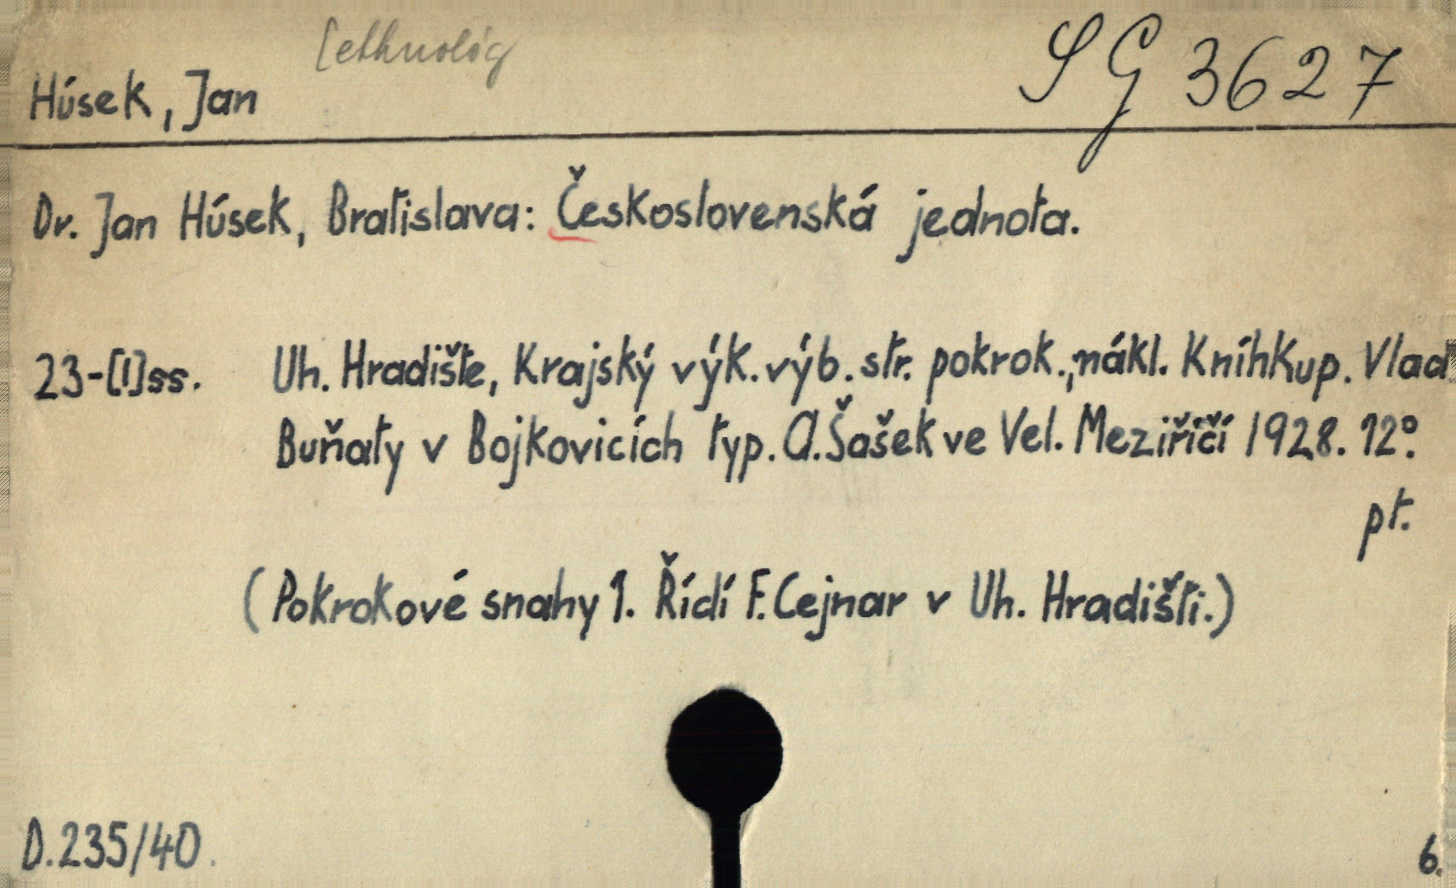 [ethnológ
SG 3627
Húsek, Jan
Dr. Jan Húsek, Bratislava: Československá jednota.
23-[1]ss. Uh. Hradište, Krajský výk. výb. str. pokrok.; nákl. Kníhkup. Vlad.
Buňaty v Bojkovicích typ. A. Šašek ve Vel. Meziříčí 1928. 12°.
pt.
(Pokrokové snahy 1. Řídí F. Cejnar v Uh. Hradišti.)
D.235/40.
6.